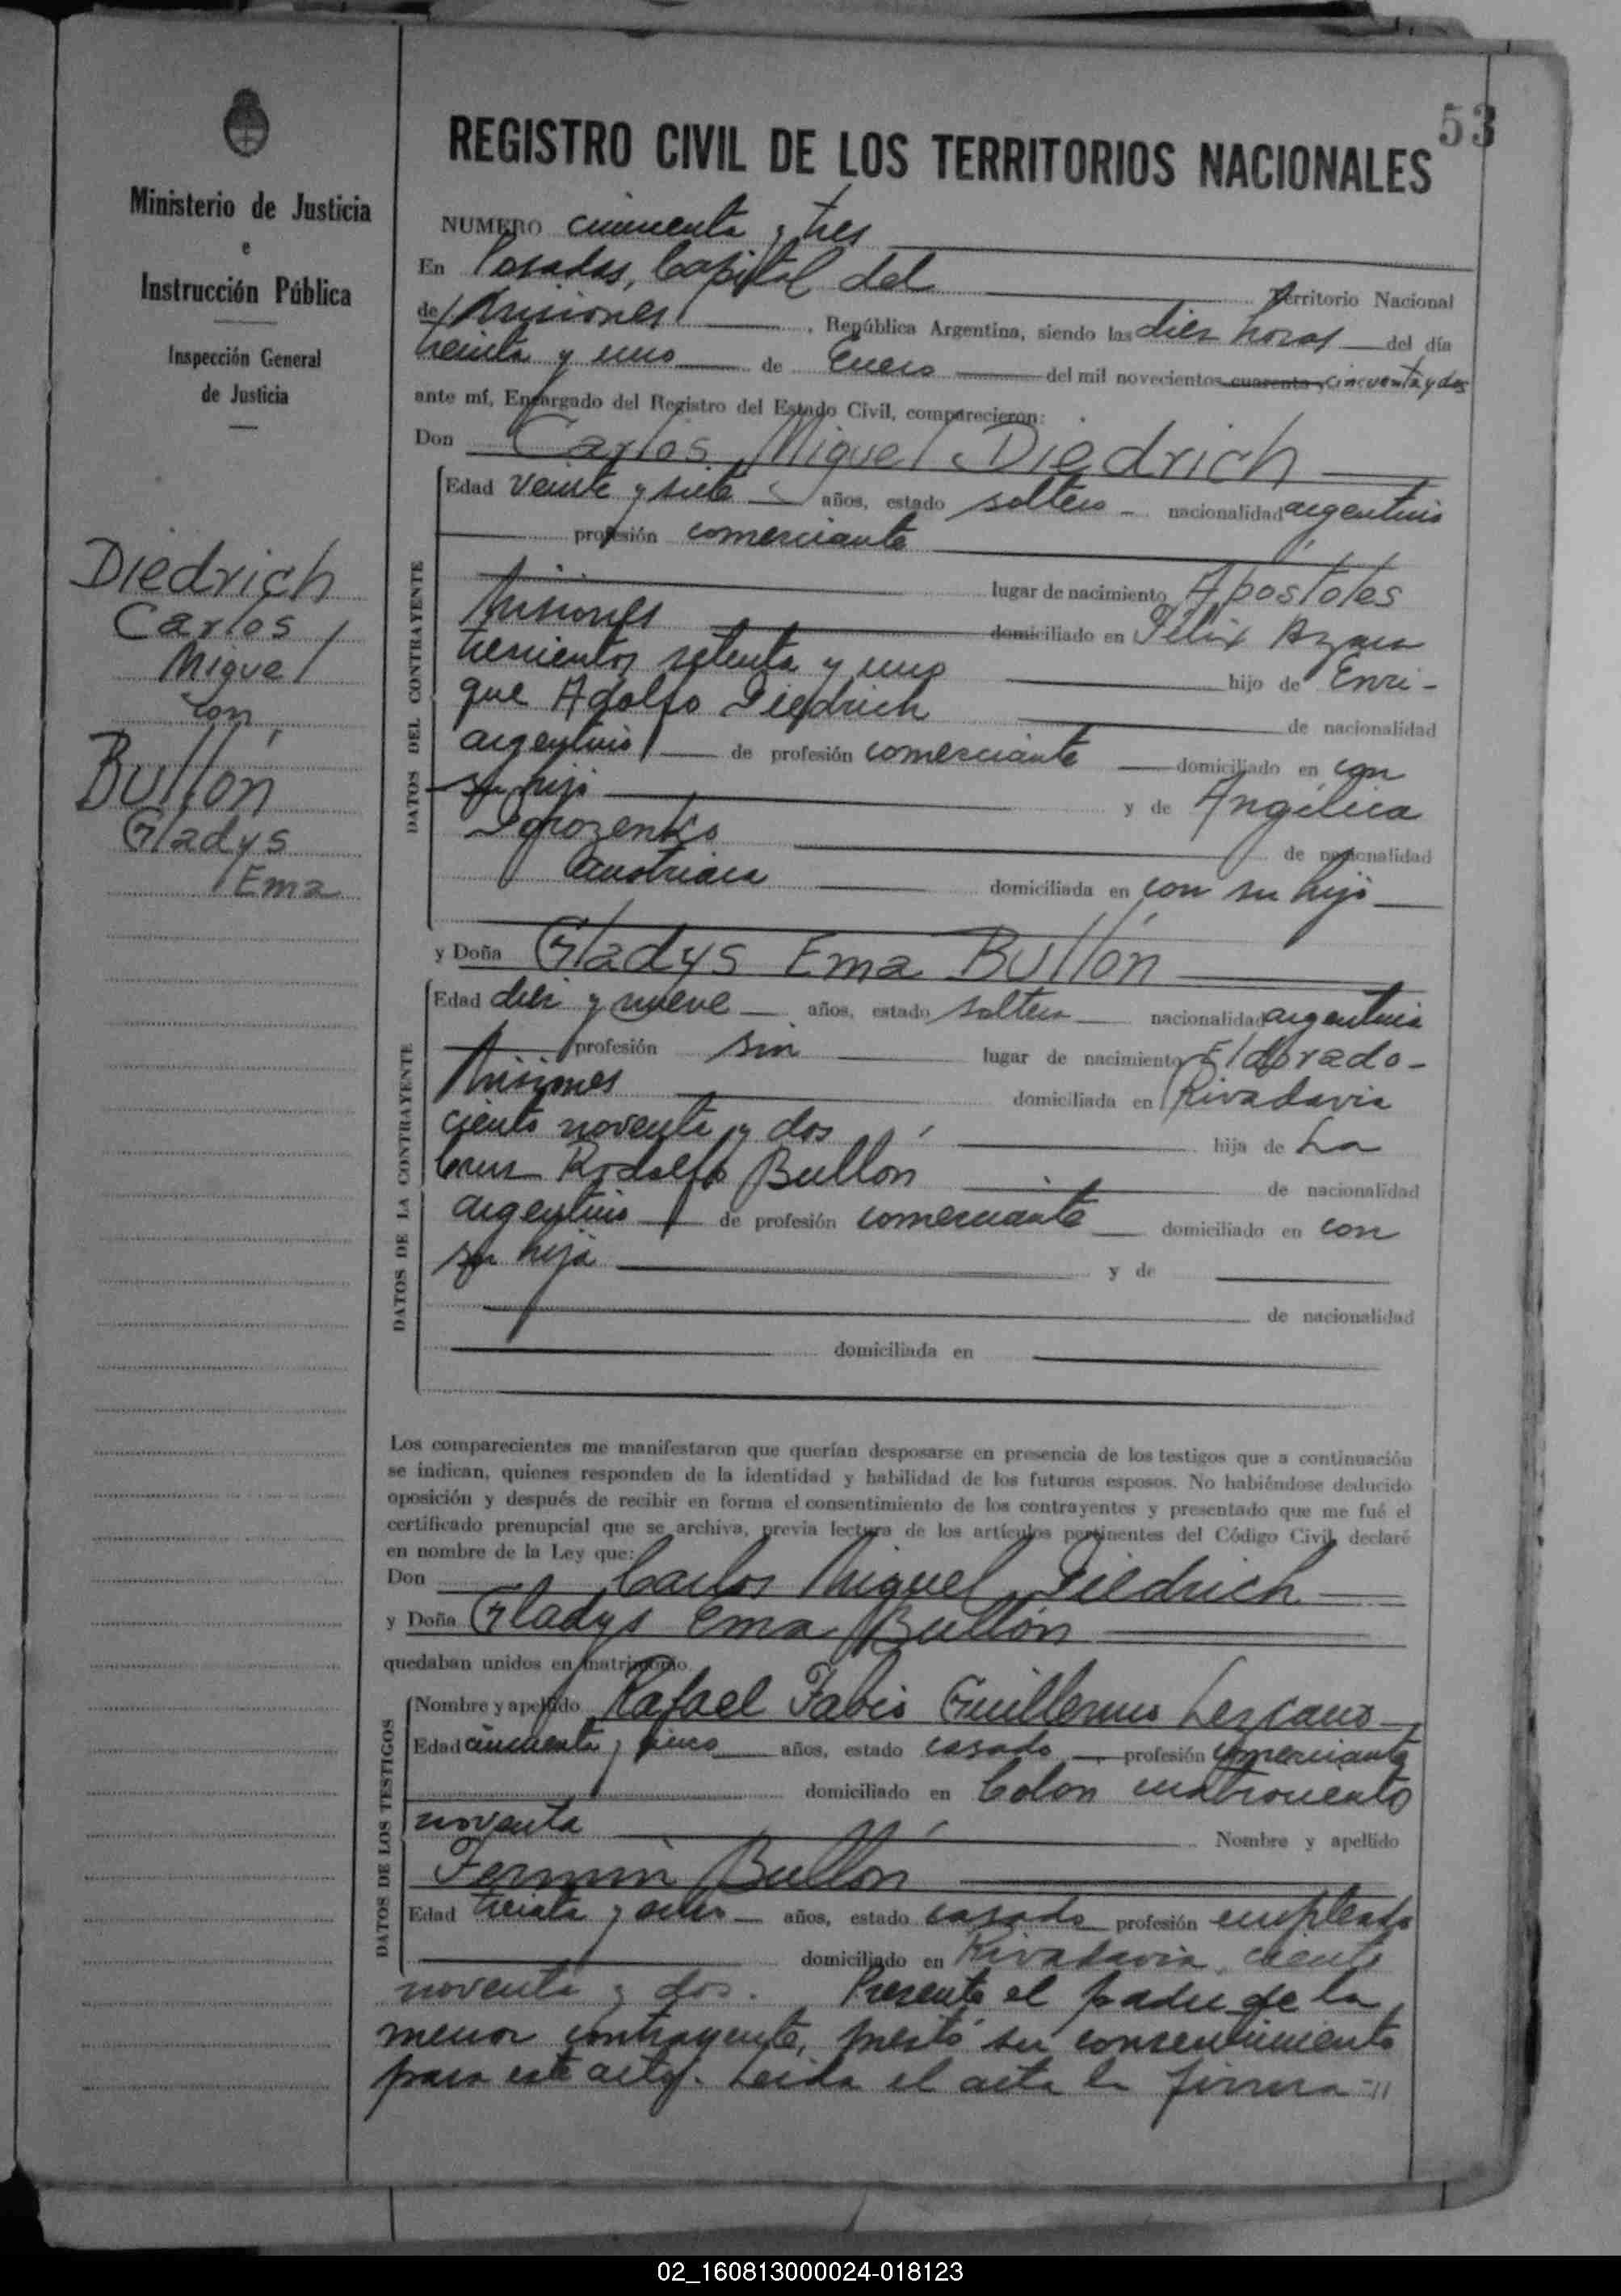 53
Ministerio de Justicia
e
Instrucción Pública
Inspección General
de Justicia
Diedrich
Carlos
Miguel
con
Bullón
Gladys
Ema
REGISTRO CIVIL DE LOS TERRITORIOS NACIONALES
NUMERO cincuenta y tres
En Posadas, Capital del Territorio Nacional
de Misiones, República Argentina, siendo las diez horas del día
treinta y uno de Enero del mil novecientos cuarenta y cincuenta y dos
ante mí, Encargado del Registro del Estado Civil, comparecieron:
Don Carlos Miguel Diedrich
DATOS DEL CONTRAYENTE
Edad veinte y siete años, estado soltero nacionalidad argentino
profesión comerciante
lugar de nacimiento Apóstoles
Misiones domiciliado en Félix Azara
trescientos setenta y uno hijo de Enri-
que Adolfo Diedrich de nacionalidad
argentino de profesión comerciante domiciliado en con
su hijo y de Angélica
Dorozenko de nacionalidad
austriaca domiciliada en con su hijo
y Doña Gladys Ema Bullón
DATOS DE LA CONTRAYENTE
Edad diez y nueve años, estado soltera nacionalidad argentina
profesión sin lugar de nacimiento Eldorado-
Misiones domiciliada en Rivadavia
ciento noventa y dos hija de La
Cruz Rodolfo Bullón de nacionalidad
argentino de profesión comerciante domiciliado en con
su hija y de
de nacionalidad
domiciliada en
Los comparecientes me manifestaron que querían desposarse en presencia de los testigos que a continuación
se indican, quienes responden de la identidad y habilidad de los futuros esposos. No habiéndose deducido
oposición y después de recibir en forma el consentimiento de los contrayentes y presentado que me fué el
certificado prenupcial que se archiva, previa lectura de los artículos pertinentes del Código Civil, declaré
en nombre de la Ley que:
Don Carlos Miguel Diedrich
y Doña Gladys Ema Bullón
quedaban unidos en matrimonio.
DATOS DE LOS TESTIGOS
Nombre y apellido Rafael Fabio Guillermo Lezcano
Edad cincuenta y cinco años, estado casado profesión comerciante
domiciliado en Colon cuatrocientos
noventa Nombre y apellido
Fermín Bullón
Edad treinta y ocho años, estado casado profesión empleado
domiciliado en Rivadavia ciento
noventa y dos. Presente el padre de la
menor contrayente, prestó su consentimiento
para este acto. Leida el acta la firma-"
02_160813000024-018123